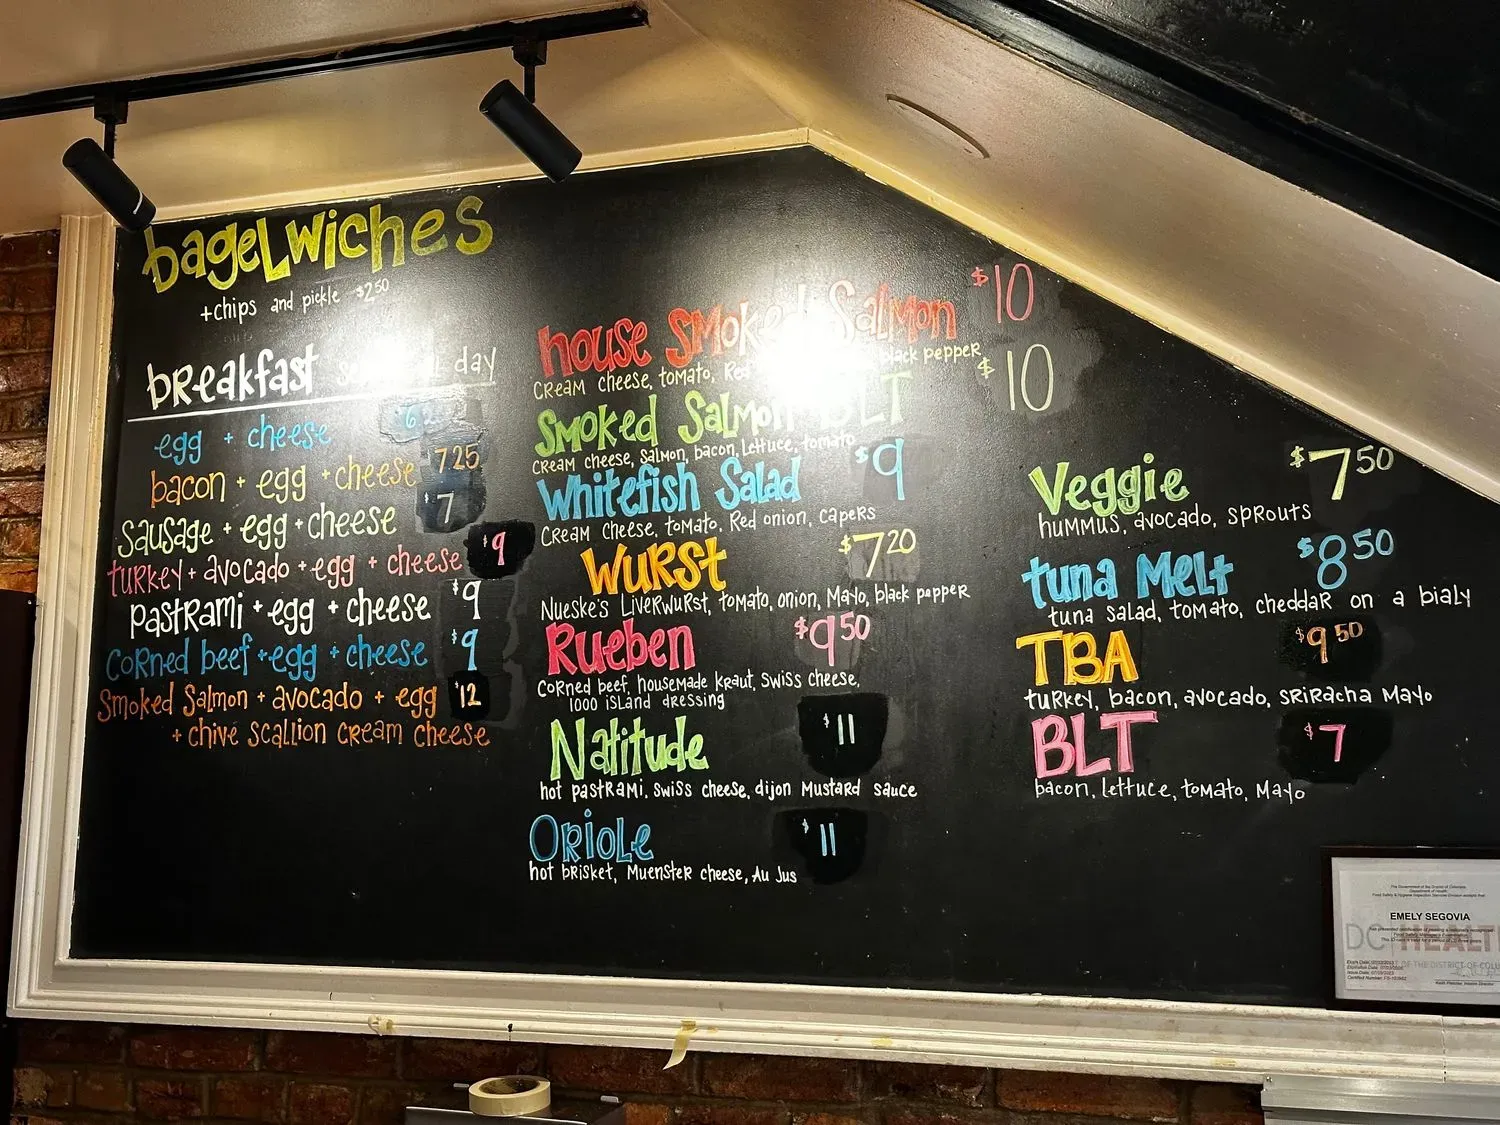 bagelwiches
+chips and pickle $2.50
breakfast day
egg + cheese
bacon + egg + cheese 7 25
sausage + egg + cheese $7
turkey + avocado + egg + cheese $9
pastrami + egg + cheese $9
corned beef + egg + cheese $9
smoked salmon + avocado + egg $12
+ chive scallion cream cheese
house smoked salmon $10
cream cheese, tomato, Red black pepper
smoked salmon BLT $10
cream cheese, salmon, bacon, lettuce, tomato
whitefish salad $9
cream cheese, tomato, Red onion, capers
Wurst $7 20
Nueske's Liverwurst, tomato, onion, Mayo, black pepper
Rueben $9 50
corned beef, housemade kraut, swiss cheese,
1000 island dressing
Natitude $11
hot pastrami, swiss cheese, dijon Mustard sauce
Oriole $11
hot brisket, Muenster cheese, Au Jus
Veggie $7 50
hummus, avocado, sprouts
tuna Melt $8 50
tuna salad, tomato, cheddar on a bialy
TBA $9 50
turkey, bacon, avocado, sriracha Mayo
BLT $7
bacon, lettuce, tomato, Mayo
The Government of the District of Columbia
Department of Health
EMELY SEGOVIA
DC HEALT
OF THE DISTRICT OF COLU